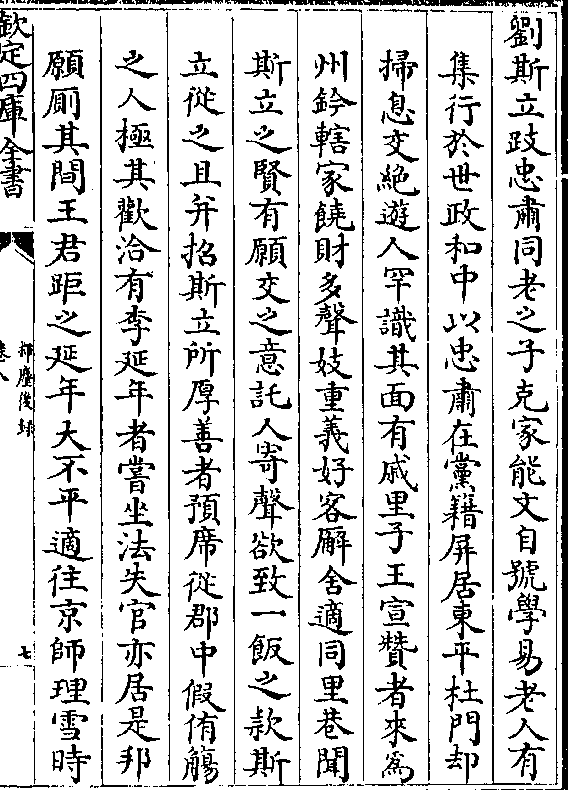 劉斯立跂忠肅同老之子克家能文自號學易老人有
集行於世政和中以忠肅在黨籍屏居東平杜門却
掃息交絶遊人罕識其面有戚里子王宣贊者來為
州鈐轄家饒財多聲妓重義好客廨舍適同里巷聞
斯立之賢有願交之意託人寄聲欲致一飯之款斯
立從之且并招斯立所厚善者預席從郡中假侑觴
之人極其歡洽有李延年者嘗坐法失官亦居是邦
願厠其間王君距之延年大不平適往京師理雪時
欽定四庫全書
揮麈後録
卷八
七